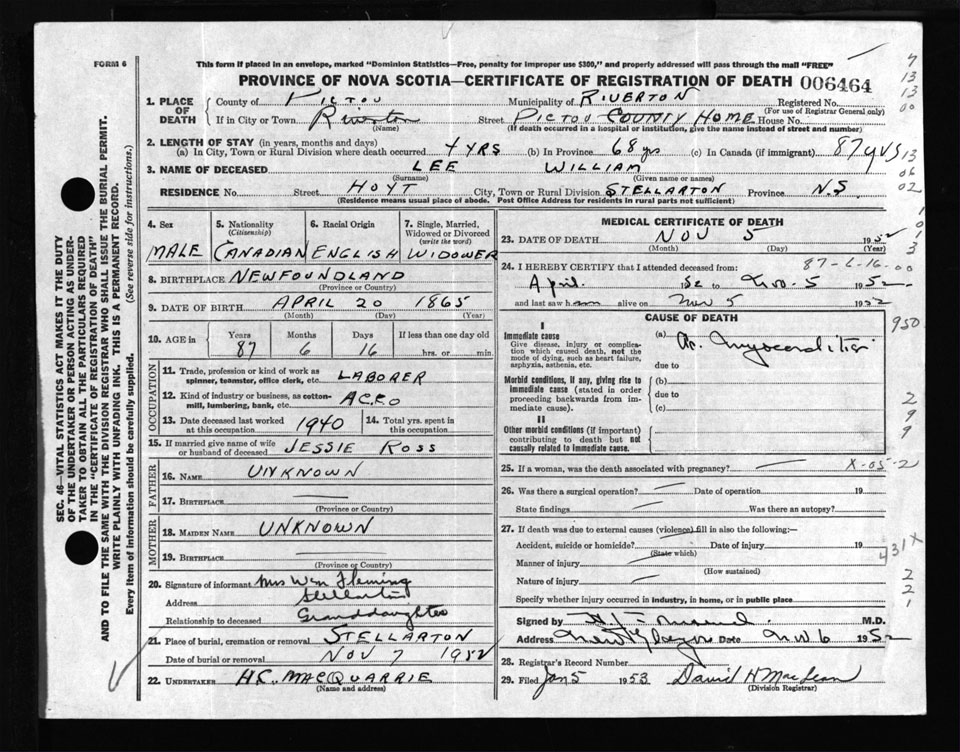 FORM 6
This form if placed in an envelope, marked "Dominion Statistics—Free, penalty for improper use $300," and properly addressed will pass through the mail "FREE"
PROVINCE OF NOVA SCOTIA—CERTIFICATE OF REGISTRATION OF DEATH 006464
1. PLACE OF DEATH County of PICTOU Municipality of RIVERTON Registered No.
(For use of Registrar General only)
If in City or Town Riverton Street PICTOU COUNTY HOME House No.
(Name) (If death occurred in a hospital or institution, give the name instead of street and number)
2. LENGTH OF STAY (in years, months and days)
(a) In City, Town or Rural Division where death occurred 4 YRS (b) In Province 68 yrs (c) In Canada (if immigrant) 87 yrs
3. NAME OF DECEASED LEE WILLIAM
(Surname) (Given name or names)
RESIDENCE No. Street HOYT City, Town or Rural Division STELLARTON Province N.S
(Residence means usual place of abode. Post Office Address for residents in rural parts not sufficient)
4. Sex MALE
5. Nationality (Citizenship) CANADIAN
6. Racial Origin ENGLISH
7. Single, Married, Widowed or Divorced (write the word) WIDOWER
8. BIRTHPLACE NEWFOUNDLAND
(Province or Country)
9. DATE OF BIRTH APRIL 20 1865
(Month) (Day) (Year)
10. AGE in Years Months Days If less than one day old
87 6 16 hrs. or min.
OCCUPATION
11. Trade, profession or kind of work as spinner, teamster, office clerk, etc. LABORER
12. Kind of industry or business, as cotton-mill, lumbering, bank, etc.
13. Date deceased last worked at this occupation 1940
14. Total yrs. spent in this occupation
15. If married give name of wife or husband of deceased JESSIE ROSS
FATHER
16. NAME UNKNOWN
17. BIRTHPLACE
(Province or Country)
MOTHER
18. MAIDEN NAME UNKNOWN
19. BIRTHPLACE
(Province or Country)
20. Signature of informant Mrs Wm Fleming
Address Stellarton
Relationship to deceased Granddaughter
21. Place of burial, cremation or removal STELLARTON
Date of burial or removal NOV 7 1952
22. UNDERTAKER H.C. MACQUARRIE
(Name and address)
MEDICAL CERTIFICATE OF DEATH
23. DATE OF DEATH NOV 5 1952
(Month) (Day) (Year)
87-6-16-00
24. I HEREBY CERTIFY that I attended deceased from:
April 52 to Nov. 5 1952
and last saw h alive on Nov 5 1952
CAUSE OF DEATH
I
Immediate cause
Give disease, injury or complication which caused death, not the mode of dying, such as heart failure, asphyxia, asthenia, etc.
(a) Ac. Myocarditis
due to
Morbid conditions, if any, giving rise to immediate cause (stated in order proceeding backwards from immediate cause).
(b)
due to
(c)
II
Other morbid conditions (if important) contributing to death but not causally related to immediate cause.
25. If a woman, was the death associated with pregnancy? X-05-2
26. Was there a surgical operation? Date of operation 19
State findings Was there an autopsy?
27. If death was due to external causes (violence) fill in also the following:—
Accident, suicide or homicide? Date of injury 19
(State which)
Manner of injury
(How sustained)
Nature of injury
Specify whether injury occurred in industry, in home, or in public place
Signed by M.D.
Address New Glasgow Date Nov 6 1952
28. Registrar's Record Number
29. Filed Jan 5 1953 David H MacLean
(Division Registrar)
7
13
13
00
13
06
02
1
0
1
3
950
2
9
9
431X
2
2
1
SEC. 46—VITAL STATISTICS ACT MAKES IT THE DUTY
OF THE UNDERTAKER OR PERSON ACTING AS UNDER-
TAKER TO OBTAIN ALL THE PARTICULARS REQUIRED
IN THE "CERTIFICATE OF REGISTRATION OF DEATH"
AND TO FILE THE SAME WITH THE DIVISION REGISTRAR WHO SHALL ISSUE THE BURIAL PERMIT.
WRITE PLAINLY WITH UNFADING INK. THIS IS A PERMANENT RECORD.
Every item of Information should be carefully supplied. (See reverse side for instructions.)